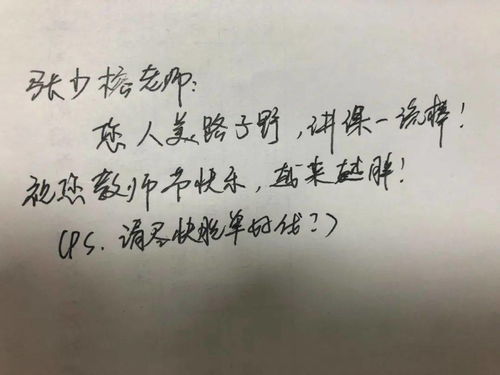 张少榕老师：
您人美路子野，讲课一级棒！
祝您教师节快乐，越来越胖！
（PS. 请尽快脱单好伐？）